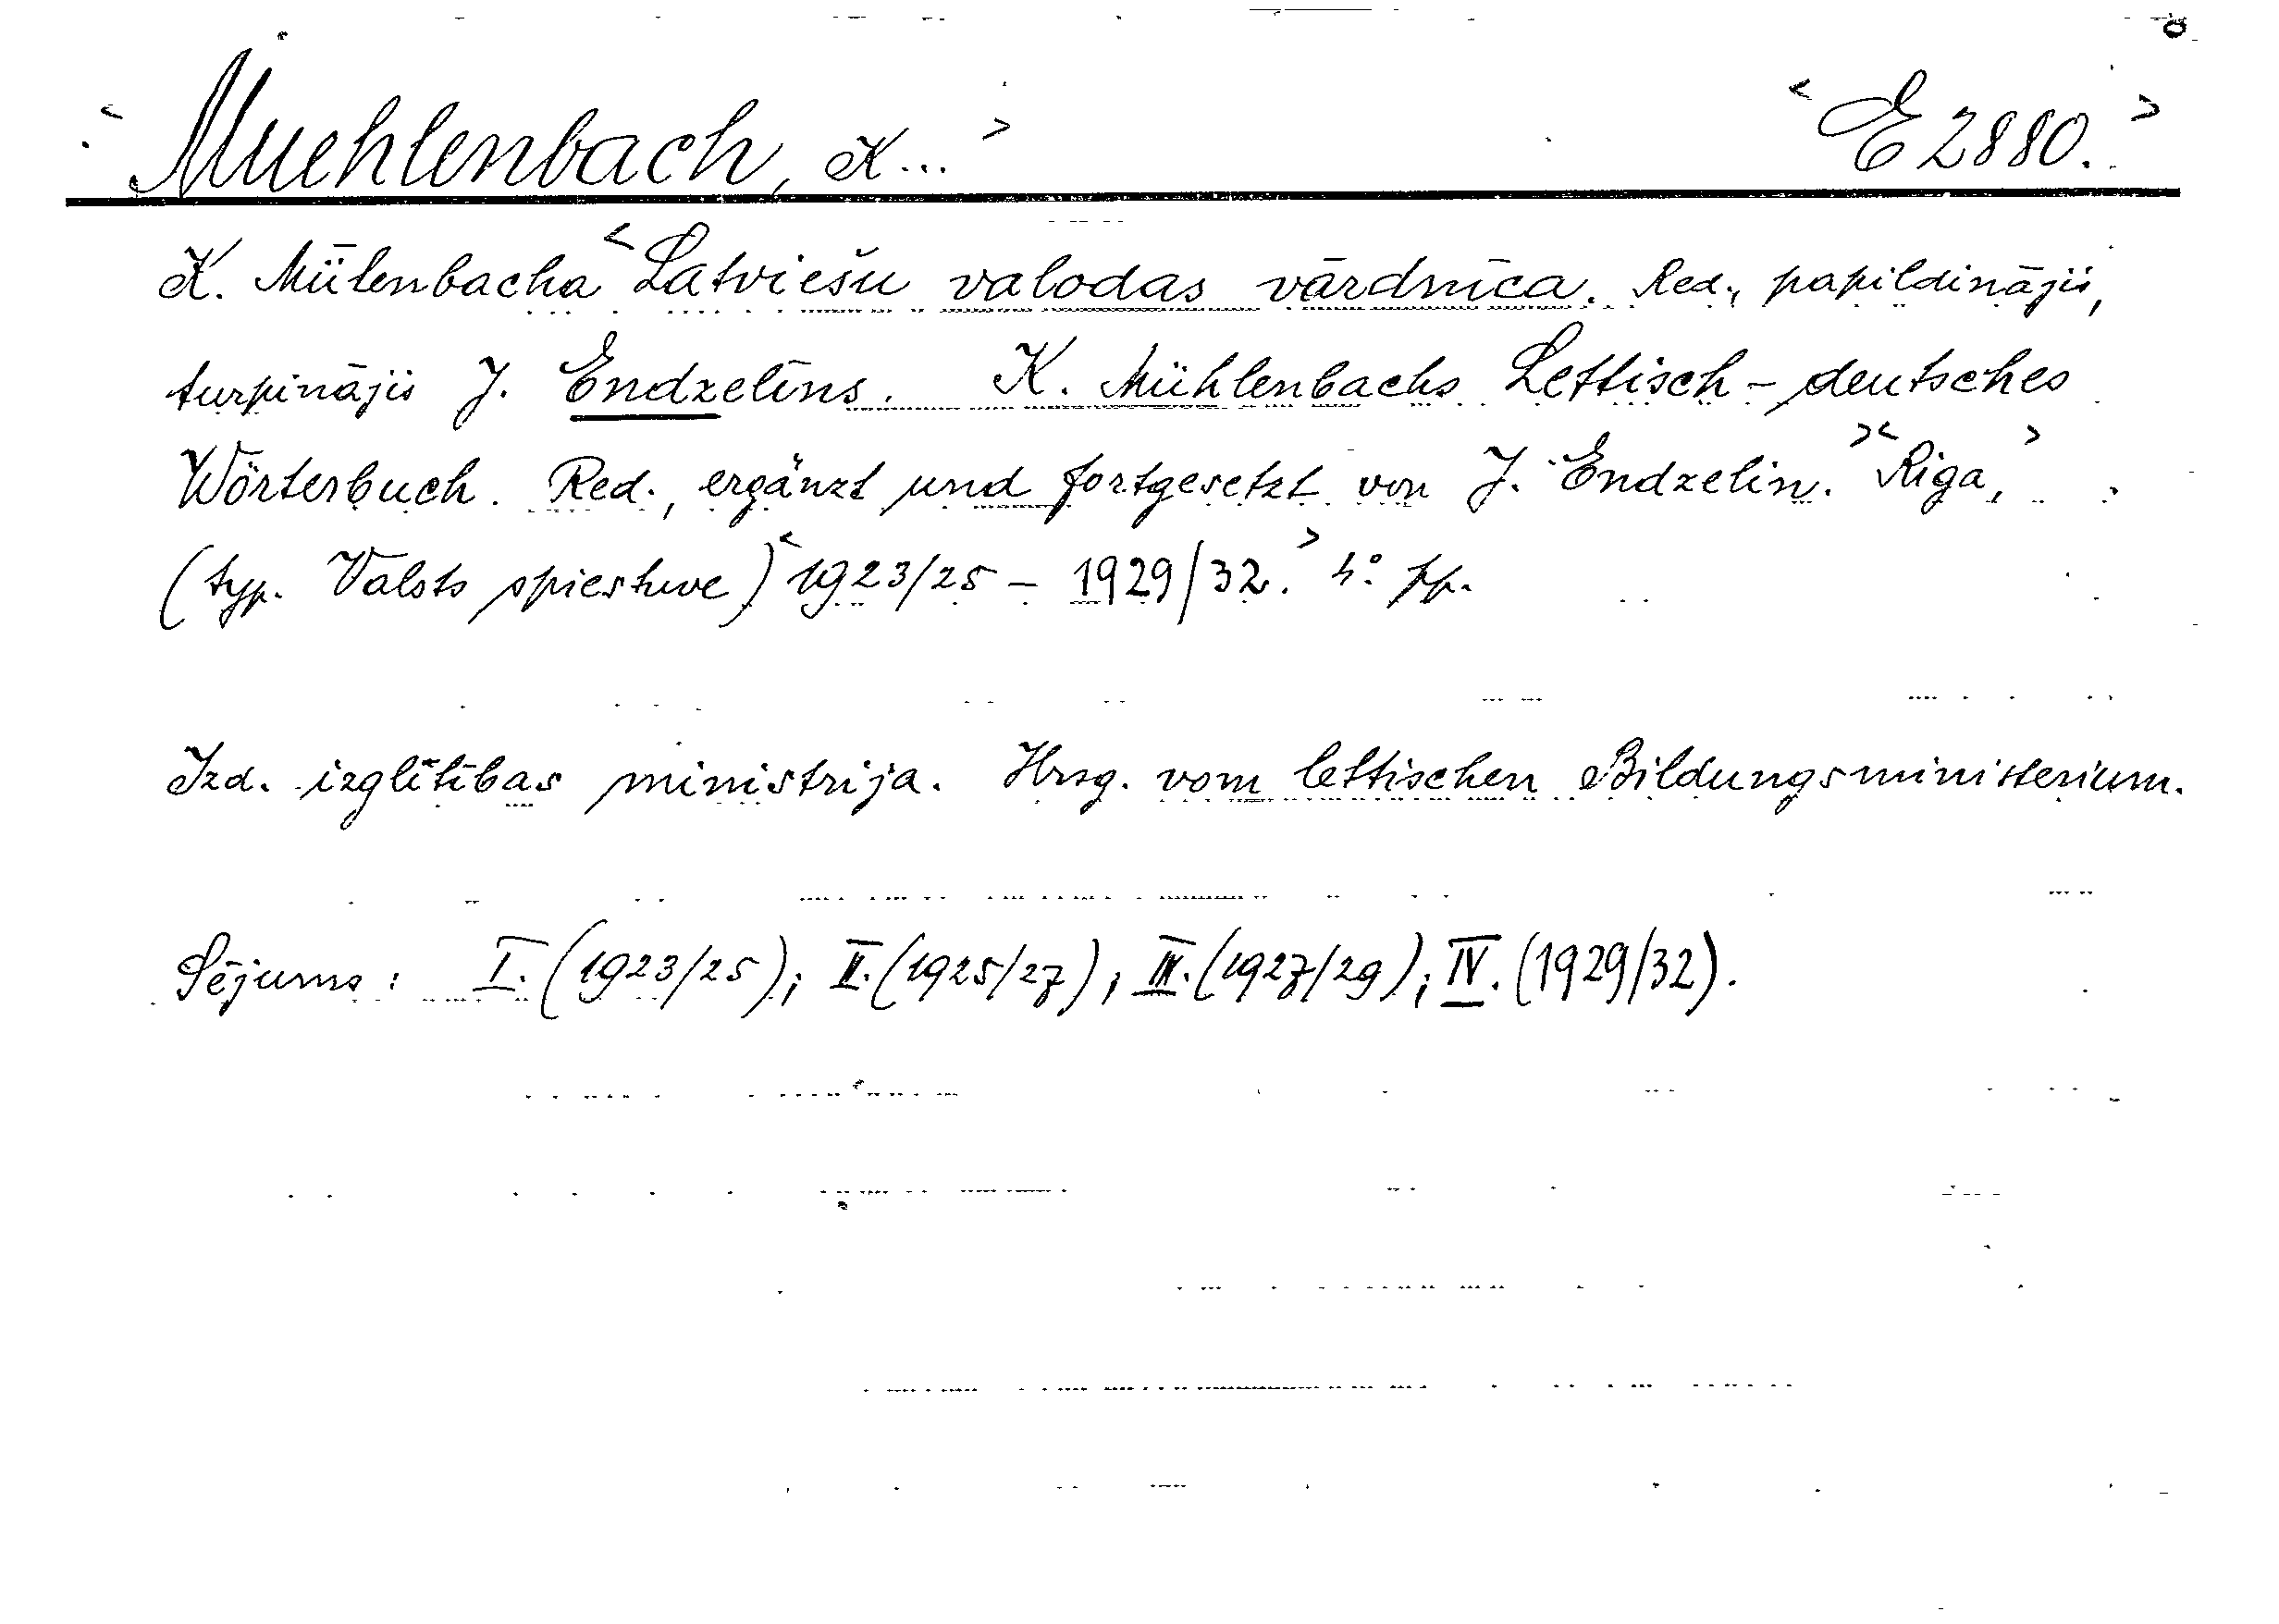 <Muehlenbach, K...> <E 2880.>
K. Mīlenbacha <Latviešu valodas vārdnīca. Red., papildinājis,
turpinājis J. Endzelīns. K. Mühlenbachs Lettisch-deutsches
Wörterbuch. Red., ergänzt und fortgesetzt von J. Endzelin.> <Riga,>
(typ. Valsts spiestuve) <1923/25 - 1929/32.> 4° pp.
Izd. izglītības ministrija. Hrsg. vom lettischen Bildungsministerium.
Sējums: I. (1923/25); II. (1925/27); III. (1927/29); IV. (1929/32).